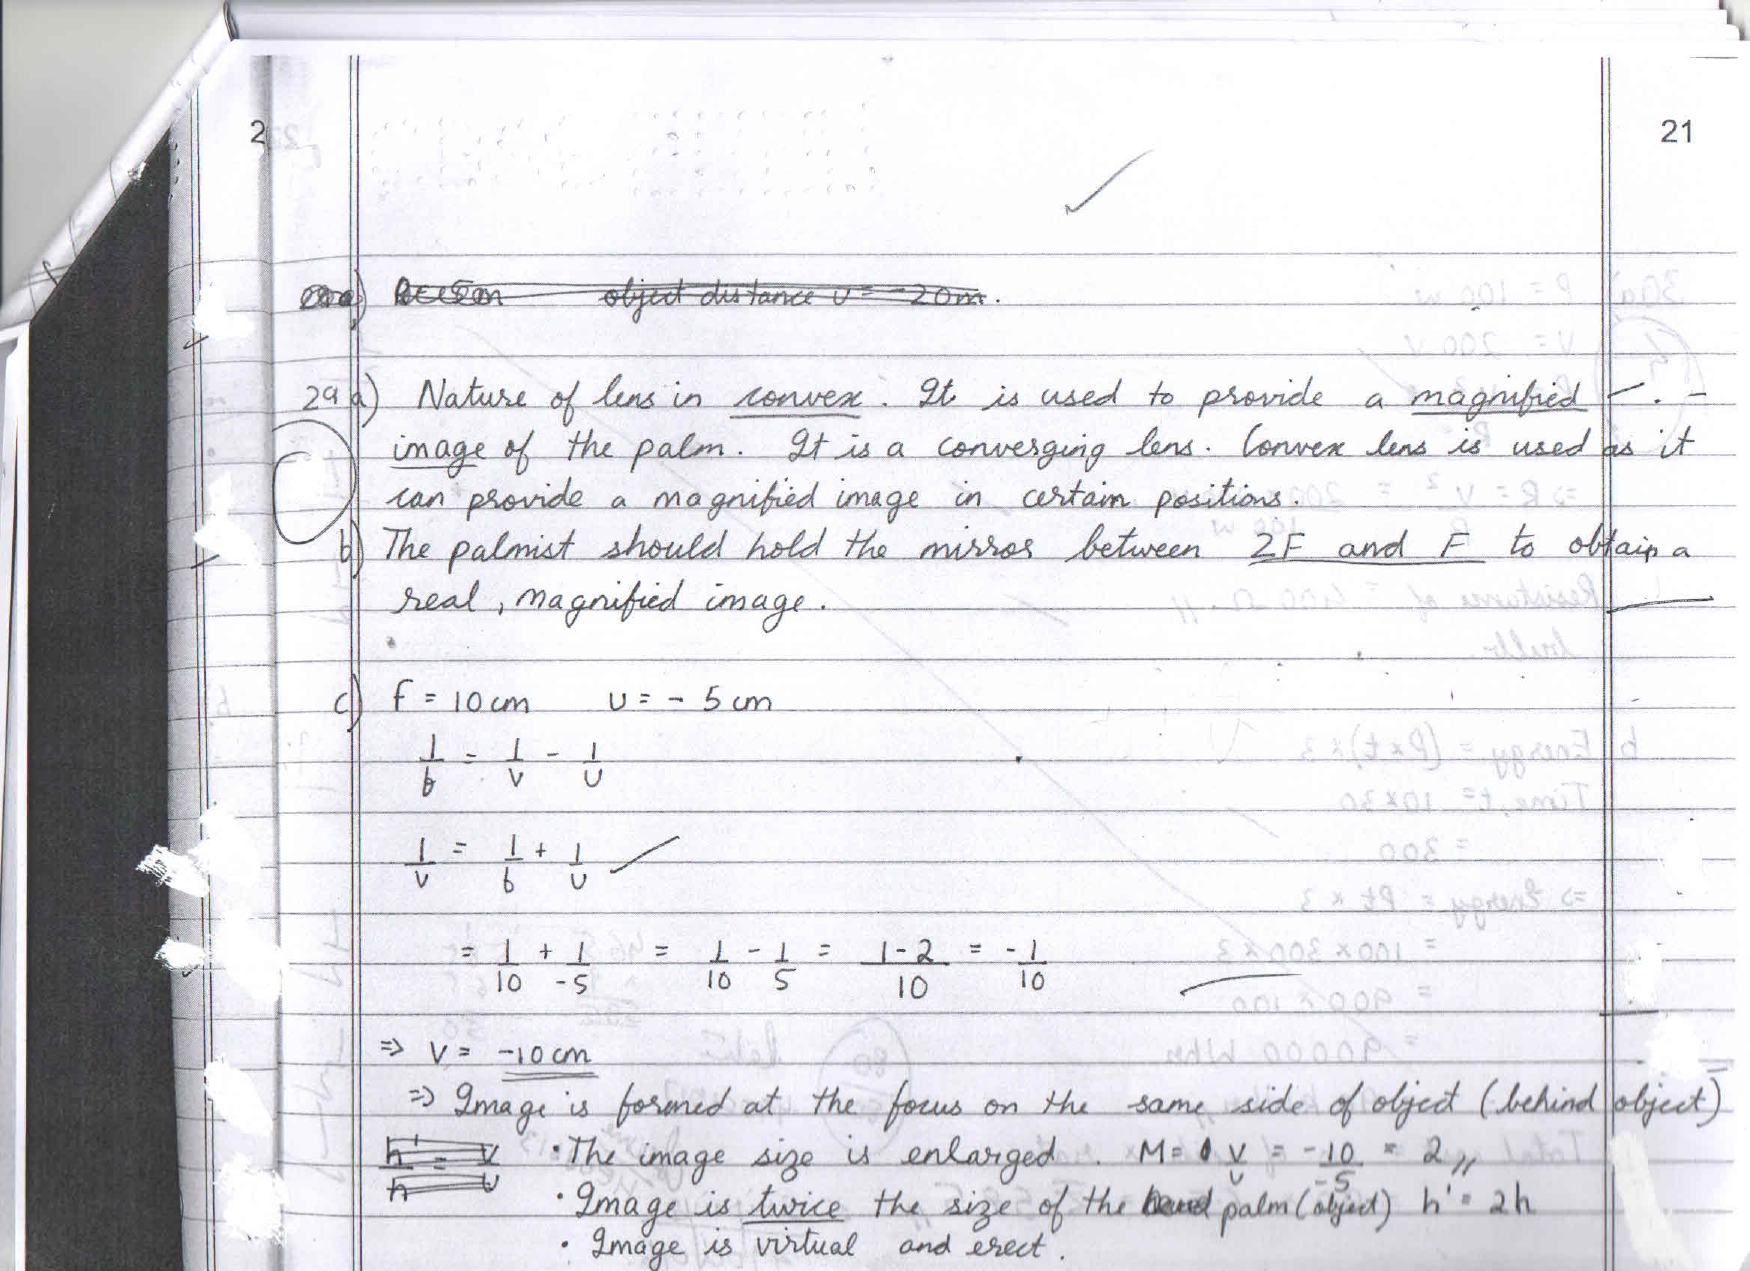 2 21
object distance u = -20m.
29 a) Nature of lens in convex. It is used to provide a magnified
image of the palm. It is a converging lens. Convex lens is used as it
can provide a magnified image in certain positions.
b) The palmist should hold the mirror between 2F and F to obtain a
real, magnified image.
c) f = 10 cm u = - 5 cm
1/f = 1/v - 1/u
1/v = 1/f + 1/u
= 1/10 + 1/-5 = 1/10 - 1/5 = 1-2/10 = -1/10
⇒ v = -10 cm
⇒ Image is formed at the focus on the same side of object (behind object)
h'/h = v/u • The image size is enlarged. M = v/u = -10/-5 = 2,,
• Image is twice the size of the palm (object) h' = 2h
• Image is virtual and erect.